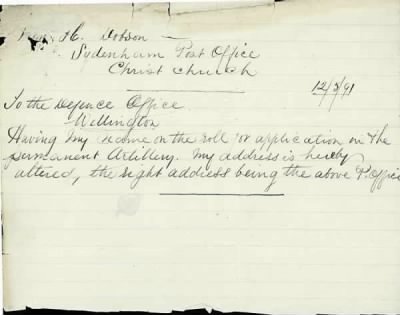 H. Dobson
Sydenham Post Office
Christchurch
12/3/91
To the Defence Office
Wellington
Having my name on the roll for application on the
permanent Artillery. My address is hereby
altered, the right address being the above P. Office